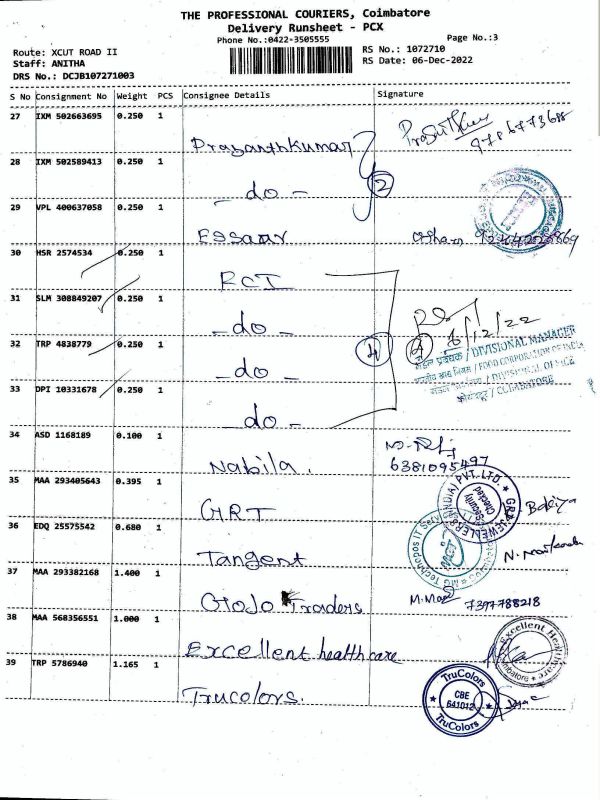 THE PROFESSIONAL COURIERS, Coimbatore
Delivery Runsheet - PCX
Phone No.:0422-3505555
Page No.:3
Route: XCUT ROAD II
RS No.: 1072710
Staff: ANITHA
RS Date: 06-Dec-2022
DRS No.: DCJB107271003
S No Consignment No Weight PCS Consignee Details Signature
27 IXM 502663695 0.250 1 Prasanthkumar
28 IXM 502589413 0.250 1 - do - 2
29 VPL 400637058 0.250 1 Essaar
30 HSR 2574534 0.250 1 RCI
31 SLM 308849207 0.250 1 - do -
32 TRP 4838779 0.250 1 - do - 4 4 6/12/22
मंडल प्रबंधक / DIVISIONAL MANAGER
भारतीय खाद्य निगम / FOOD CORPORATION OF INDIA
/ DIVISIONAL OFFICE
/ COIMBATORE
33 DPI 10331678 0.250 1 - do -
34 ASD 1168189 0.100 1 Nabila. 6381095497
35 MAA 293405643 0.395 1 GRT
GRT JEWELLERS (INDIA) PVT. LTD.
Security
Checked
36 EDQ 25575542 0.680 1 Tangent
37 MAA 293382168 1.400 1 GoJo Traders 7397788218
38 MAA 568356551 1.000 1 Excellent healthcare
Excellent Healthcare
Coimbatore
39 TRP 5786940 1.165 1 Trucolors.
TruColors
CBE
641012
TruColors